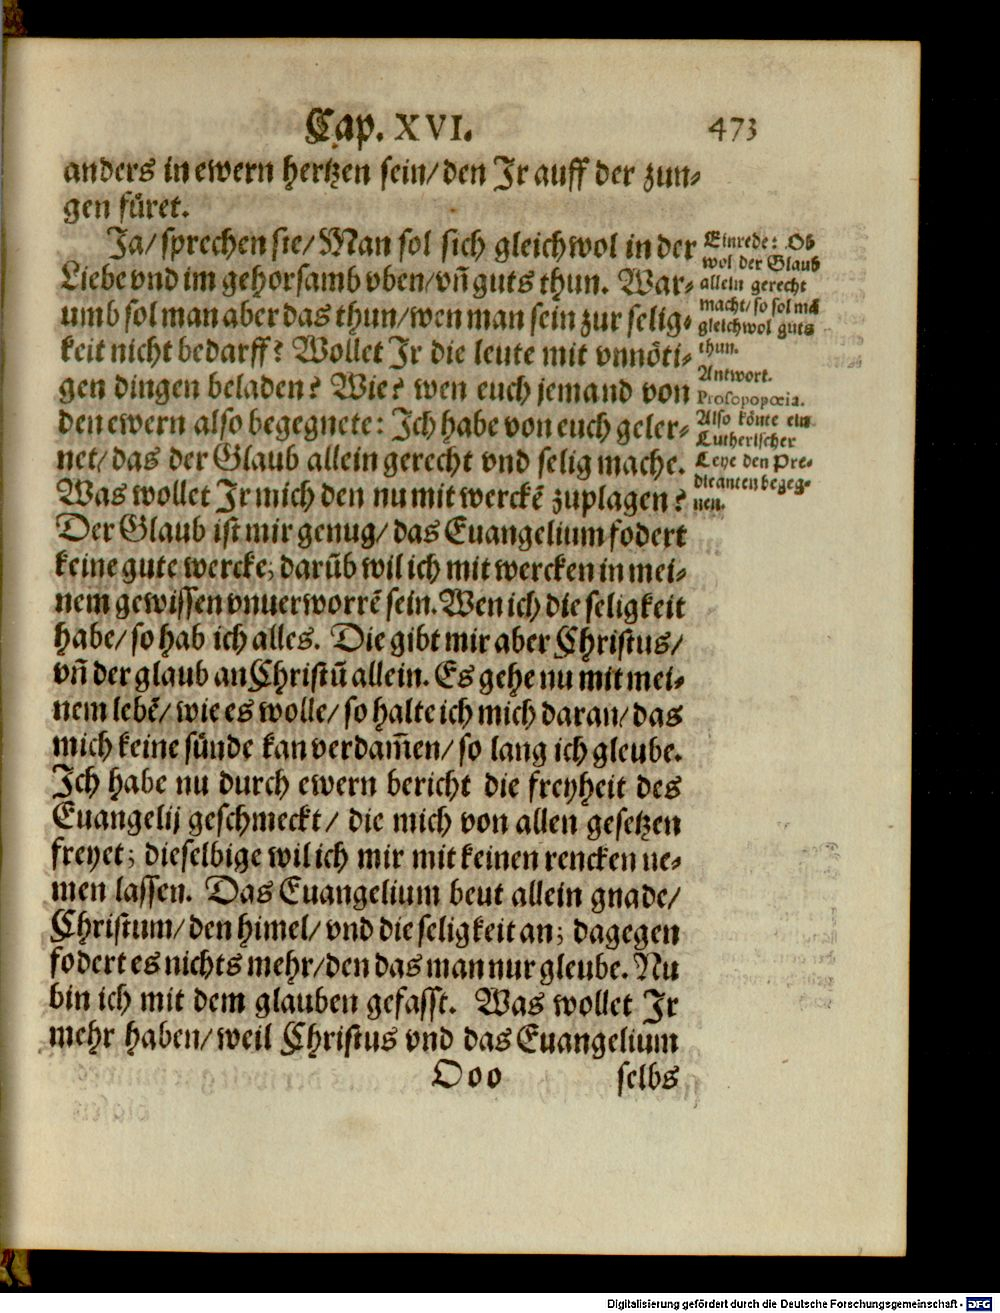 Cap. XVI. 473
anders in ewern hertzen sein/ den Jr auff der zun⸗
gen füret.
Ja/ sprechen sie/ Man sol sich gleichwol in der
Liebe vnd im gehorsamb vben/ vñ guts thun. War⸗
umb sol man aber das thun/ wen man sein zur selig⸗
keit nicht bedarff? Wollet Jr die leute mit vnnöti⸗
gen dingen beladen? Wie? wen euch jemand von
den ewern also begegnete: Jch habe von euch geler⸗
net/ das der Glaub allein gerecht vnd selig mache.
Was wollet Jr mich den nu mit werckẽ zuplagen?
Der Glaub ist mir genug/ das Euangelium fodert
keine gute wercke; darüb wil ich mit wercken in mei⸗
nem gewissen vnuerworrẽ sein. Wen ich die seligkeit
habe/ so hab ich alles. Die gibt mir aber Christus/
vñ der glaub an Christũ allein. Es gehe nu mit mei⸗
nem lebẽ/ wie es wolle/ so halte ich mich daran/ das
mich keine sünde kan verdam̃en/ so lang ich gleube.
Jch habe nu durch ewern bericht die freyheit des
Euangelij geschmeckt/ die mich von allen gesetzen
freyet; dieselbige wil ich mir mit keinen rencken ne⸗
men lassen. Das Euangelium beut allein gnade/
Christum/ den himel/ vnd die seligkeit an; dagegen
fodert es nichts mehr/ den das man nur gleube. Nu
bin ich mit dem glauben gefasst. Was wollet Jr
mehr haben/ weil Christus vnd das Euangelium
Ooo selbs
Einrede: Ob
wol der Glaub
allein gerecht
macht/ so sol mã
gleichwol guts
thun.
Antwort.
Prosopopœia.
Also köñte ein
Lutherischer
Leye den Pre⸗
dicanten begeg⸗
nen.
Digitalisierung gefördert durch die Deutsche Forschungsgemeinschaft - DFG